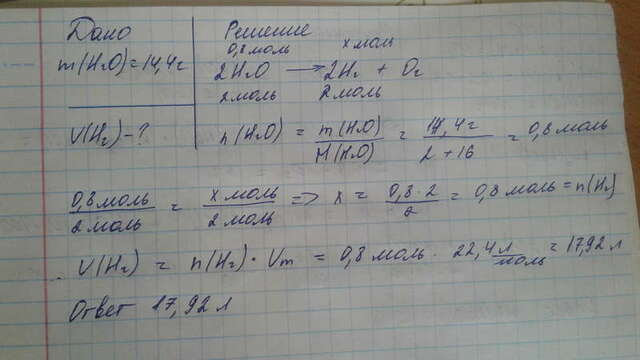 Дано
m(H₂O)=14,4г
V(H₂)-?
Решение
0,8моль x моль
2H₂O → 2H₂ + O₂
2моль 2моль
n(H₂O) = m(H₂O)/M(H₂O) = 14,4г/2+16 = 0,8 моль
0,8моль/2моль = x моль/2 моль => x = 0,8·2/2 = 0,8 моль = n(H₂)
V(H₂) = n(H₂)·Vm = 0,8 моль · 22,4 л/моль = 17,92 л
Ответ 17,92 л